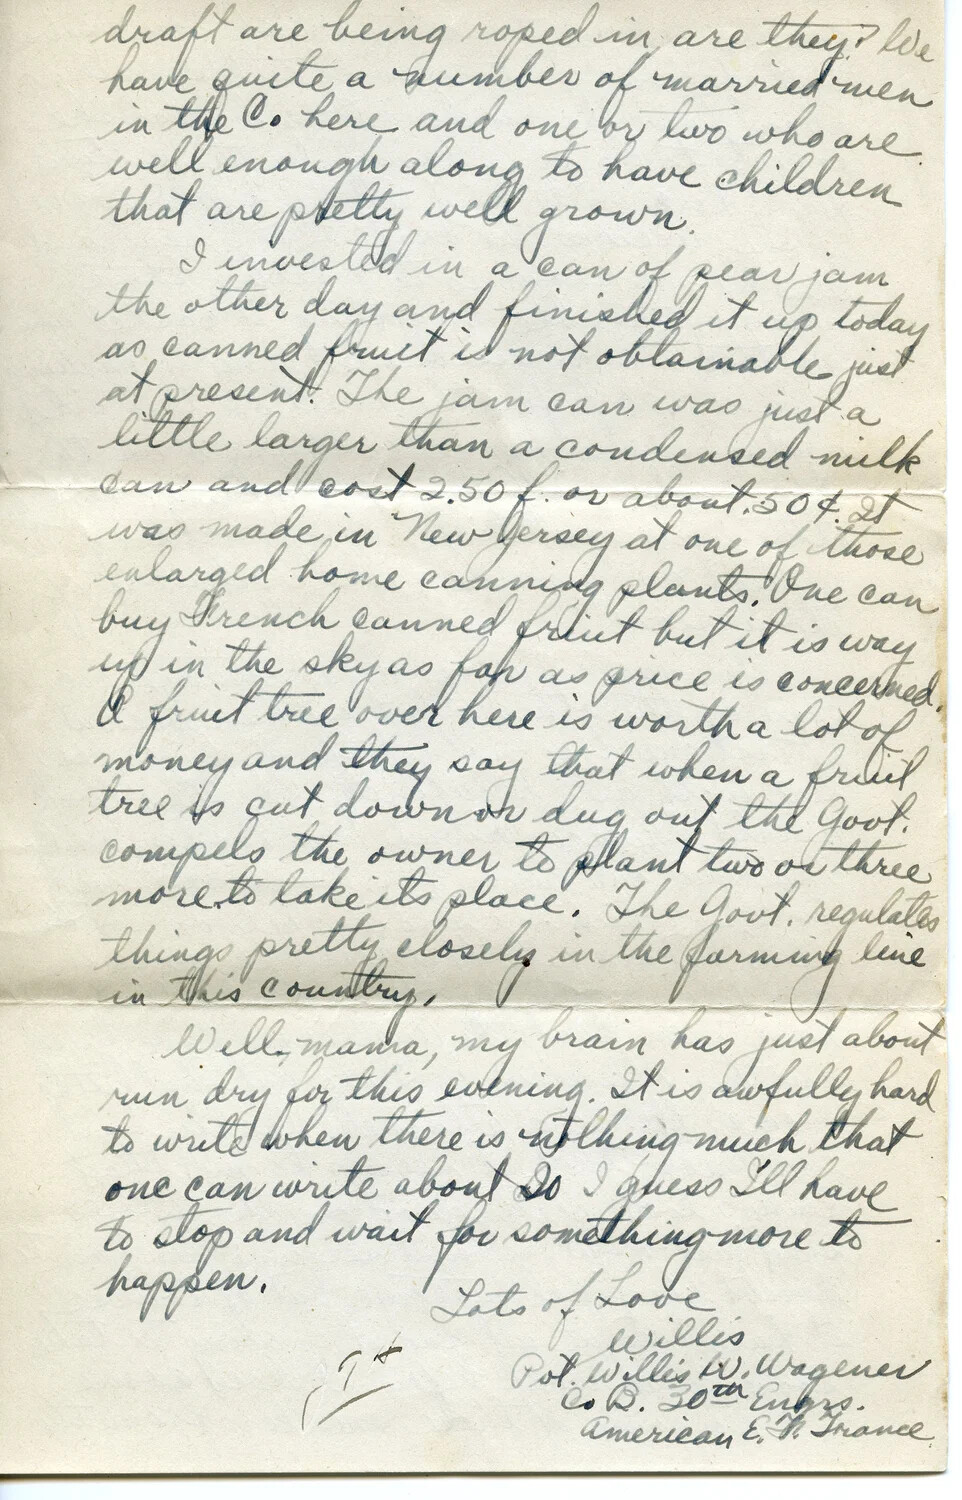 draft are being roped in, are they? We
have quite a number of married men
in the Co. here and one or two who are
well enough along to have children
that are pretty well grown.
I invested in a can of pear jam
the other day and finished it up today
as canned fruit is not obtainable just
at present. The jam can was just a
little larger than a condensed milk
can and cost 2.50 f. or about .50¢. It
was made in New Jersey at one of those
enlarged home canning plants. One can
buy French canned fruit but it is way
up in the sky as far as price is concerned.
A fruit tree over here is worth a lot of
money and they say that when a fruit
tree is cut down or dug out the Govt.
compels the owner to plant two or three
more to take its place. The Govt. regulates
things pretty closely in the farming line
in this country.
Well, mama, my brain has just about
run dry for this evening. It is awfully hard
to write when there is nothing much that
one can write about So I guess I'll have
to stop and wait for something more to
happen.
Lots of Love
Willis
Pvt. Willis W. Wagener
Co B. 30th Engrs.
American E. F. France